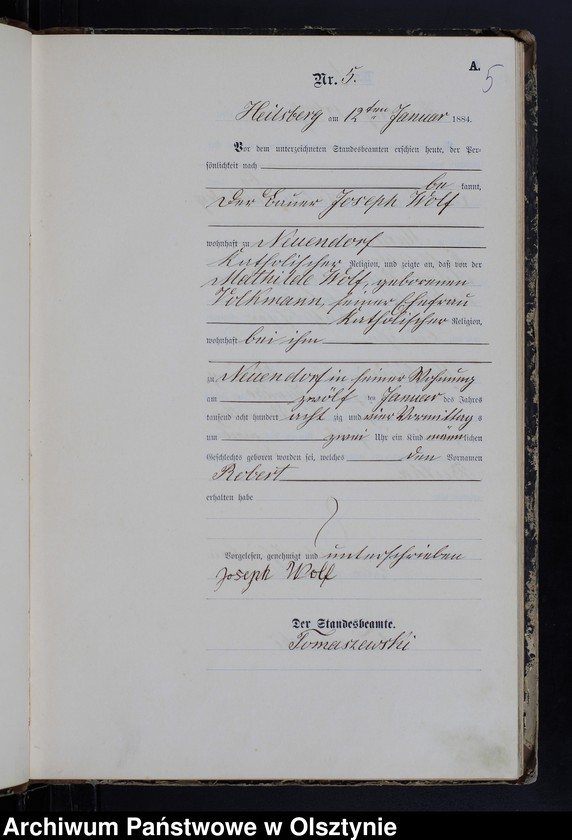 A.
5
Nr. 5.
Heilsberg am 12ten Januar 1884.
Vor dem unterzeichneten Standesbeamten erschien heute, der Per-
sönlichkeit nach
be kannt,
Der Bauer Joseph Wolf
wohnhaft zu Neuendorf
Katholischer Religion, und zeigte an, daß von der
Mathilde Wolf, geborenen
Volkmann, seiner Ehefrau
Katholischer Religion,
wohnhaft bei ihm
zu Neuendorf in seiner Wohnung
am zwölf ten Januar des Jahres
tausend acht hundert acht zig und vier Vormittag s
um zwei Uhr ein Kind männ lichen
Geschlechts geboren worden sei, welches den Vornamen
Robert
erhalten habe
Vorgelesen, genehmigt und unterschrieben
Joseph Wolf
Der Standesbeamte.
Tomaszewski
Archiwum Państwowe w Olsztynie